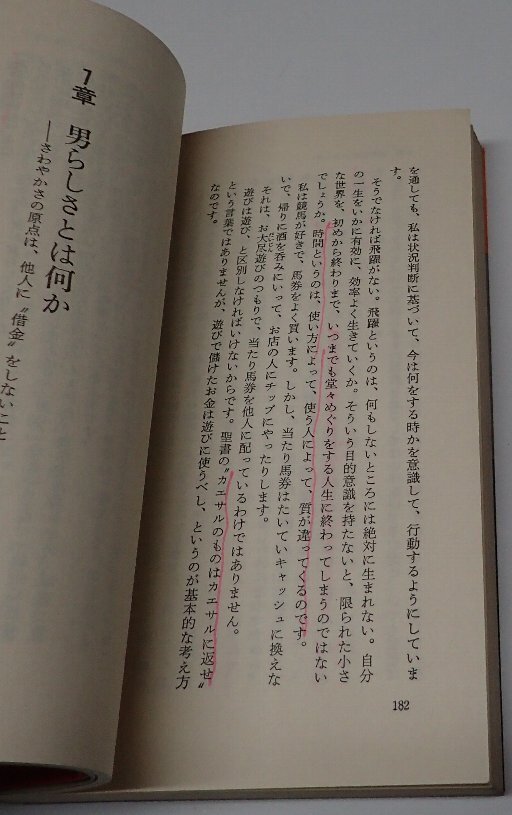 を通しても、私は状況判断に基づいて、今は何をする時かを意識して、行動するようにしていま
す。
そうでなければ飛躍がない。飛躍というのは、何もしないところには絶対に生まれない。自分
の一生をいかに有効に、効率よく生きていくか。そういう目的意識を持たないと、限られた小さ
な世界を、初めから終わりまで、いつまでも堂々めぐりをする人生に終わってしまうのではない
でしょうか。時間というのは、使い方によって、使う人によって、質が違ってくるのです。
私は競馬が好きで、馬券をよく買います。しかし、当たり馬券はたいていキャッシュに換えな
いで、帰りに酒を呑みにいって、お店の人にチップにやったりします。
それは、お大尽遊びのつもりで、当たり馬券を他人に配っているわけではありません。
遊びは遊び、と区別しなければいけないからです。聖書の〝カエサルのものはカエサルに返せ〟
という言葉ではありませんが、遊びで儲けたお金は遊びに使うべし、というのが基本的な考え方
なのです。
182
7章 男らしさとは何か
――さわやかさの原点は、他人に〝借金〟をしないこと